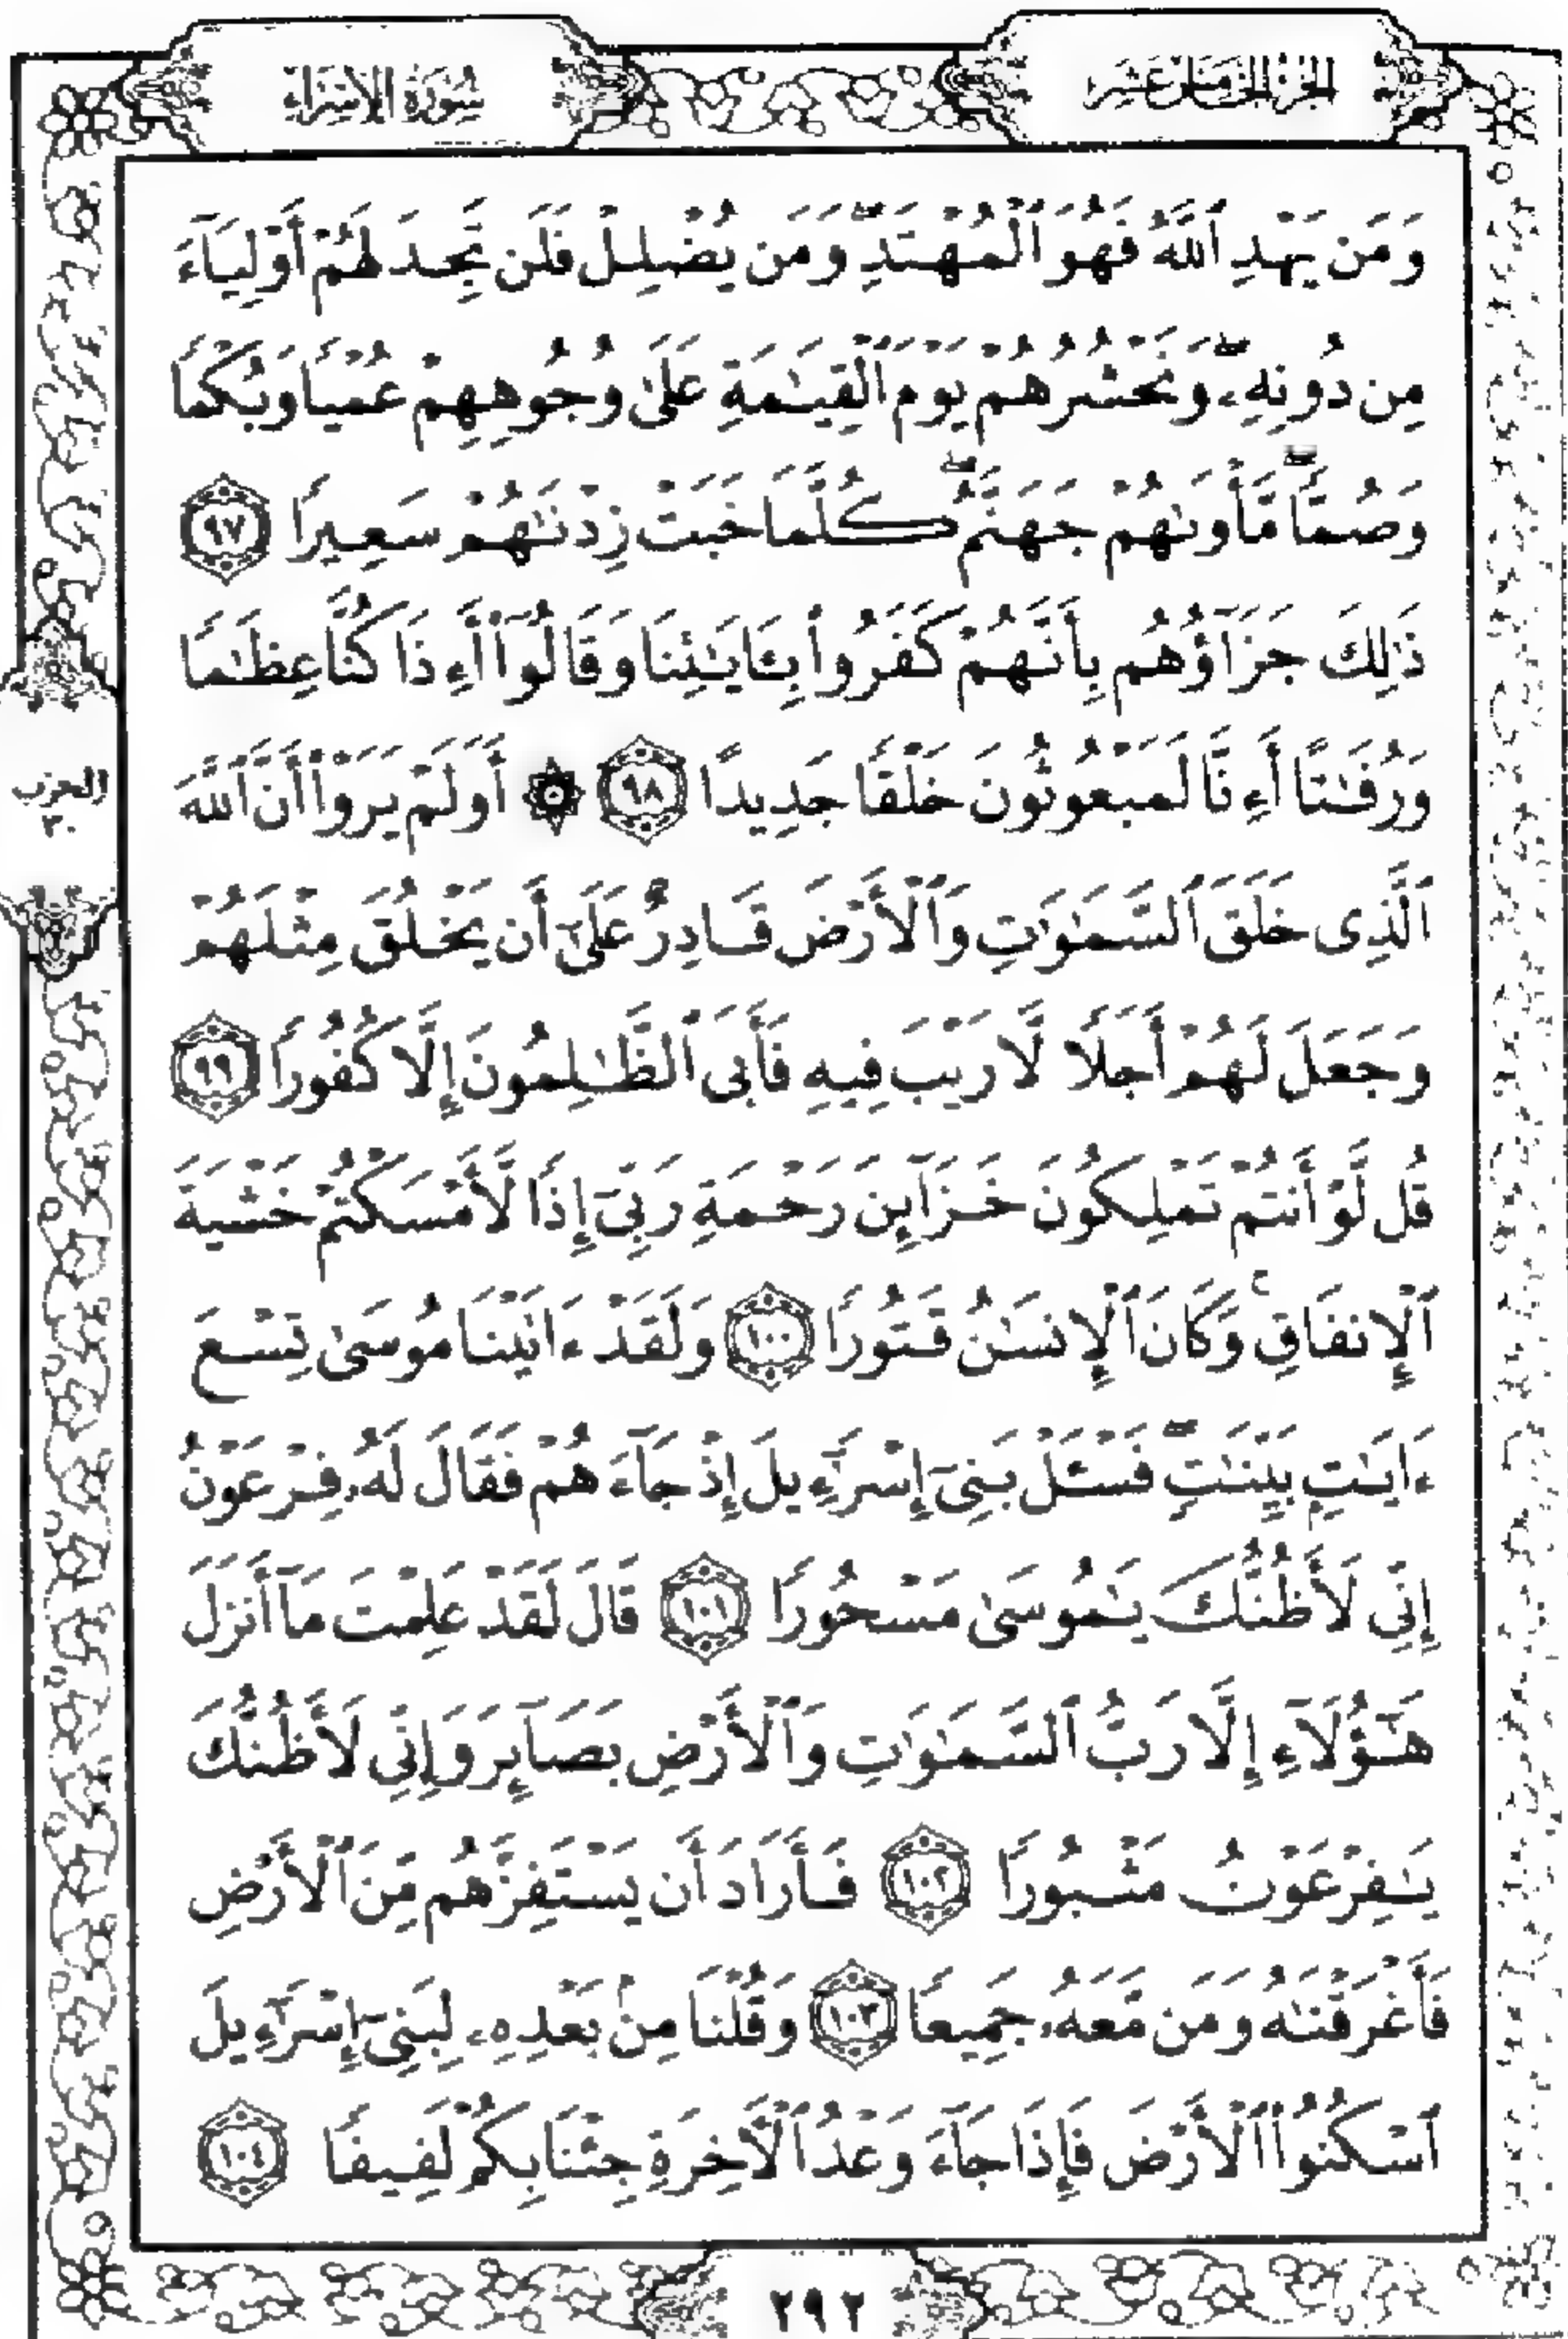 الجزء الخامس عشر
سورة الإسراء
وَمَن يَهْدِ ٱللَّهُ فَهُوَ ٱلْمُهْتَدِ ۖ وَمَن يُضْلِلْ فَلَن تَجِدَ لَهُمْ أَوْلِيَآءَ
مِن دُونِهِۦ ۖ وَنَحْشُرُهُمْ يَوْمَ ٱلْقِيَـٰمَةِ عَلَىٰ وُجُوهِهِمْ عُمْيًا وَبُكْمًا
وَصُمًّا ۖ مَّأْوَىٰهُمْ جَهَنَّمُ ۖ كُلَّمَا خَبَتْ زِدْنَـٰهُمْ سَعِيرًا ٩٧
ذَٰلِكَ جَزَآؤُهُم بِأَنَّهُمْ كَفَرُوا۟ بِـَٔايَـٰتِنَا وَقَالُوٓا۟ أَءِذَا كُنَّا عِظَـٰمًا
وَرُفَـٰتًا أَءِنَّا لَمَبْعُوثُونَ خَلْقًا جَدِيدًا ٩٨ ۞ أَوَلَمْ يَرَوْا۟ أَنَّ ٱللَّهَ
الحزب
٣٠
ٱلَّذِى خَلَقَ ٱلسَّمَـٰوَٰتِ وَٱلْأَرْضَ قَادِرٌ عَلَىٰٓ أَن يَخْلُقَ مِثْلَهُمْ
وَجَعَلَ لَهُمْ أَجَلًا لَّا رَيْبَ فِيهِ فَأَبَى ٱلظَّـٰلِمُونَ إِلَّا كُفُورًا ٩٩
قُل لَّوْ أَنتُمْ تَمْلِكُونَ خَزَآئِنَ رَحْمَةِ رَبِّىٓ إِذًا لَّأَمْسَكْتُمْ خَشْيَةَ
ٱلْإِنفَاقِ ۚ وَكَانَ ٱلْإِنسَـٰنُ قَتُورًا ١٠٠ وَلَقَدْ ءَاتَيْنَا مُوسَىٰ تِسْعَ
ءَايَـٰتٍۭ بَيِّنَـٰتٍ ۖ فَسْـَٔلْ بَنِىٓ إِسْرَٰٓءِيلَ إِذْ جَآءَهُمْ فَقَالَ لَهُۥ فِرْعَوْنُ
إِنِّى لَأَظُنُّكَ يَـٰمُوسَىٰ مَسْحُورًا ١٠١ قَالَ لَقَدْ عَلِمْتَ مَآ أَنزَلَ
هَـٰٓؤُلَآءِ إِلَّا رَبُّ ٱلسَّمَـٰوَٰتِ وَٱلْأَرْضِ بَصَآئِرَ وَإِنِّى لَأَظُنُّكَ
يَـٰفِرْعَوْنُ مَثْبُورًا ١٠٢ فَأَرَادَ أَن يَسْتَفِزَّهُم مِّنَ ٱلْأَرْضِ
فَأَغْرَقْنَـٰهُ وَمَن مَّعَهُۥ جَمِيعًا ١٠٣ وَقُلْنَا مِنۢ بَعْدِهِۦ لِبَنِىٓ إِسْرَٰٓءِيلَ
ٱسْكُنُوا۟ ٱلْأَرْضَ فَإِذَا جَآءَ وَعْدُ ٱلْـَٔاخِرَةِ جِئْنَا بِكُمْ لَفِيفًا ١٠٤
٢٩٢